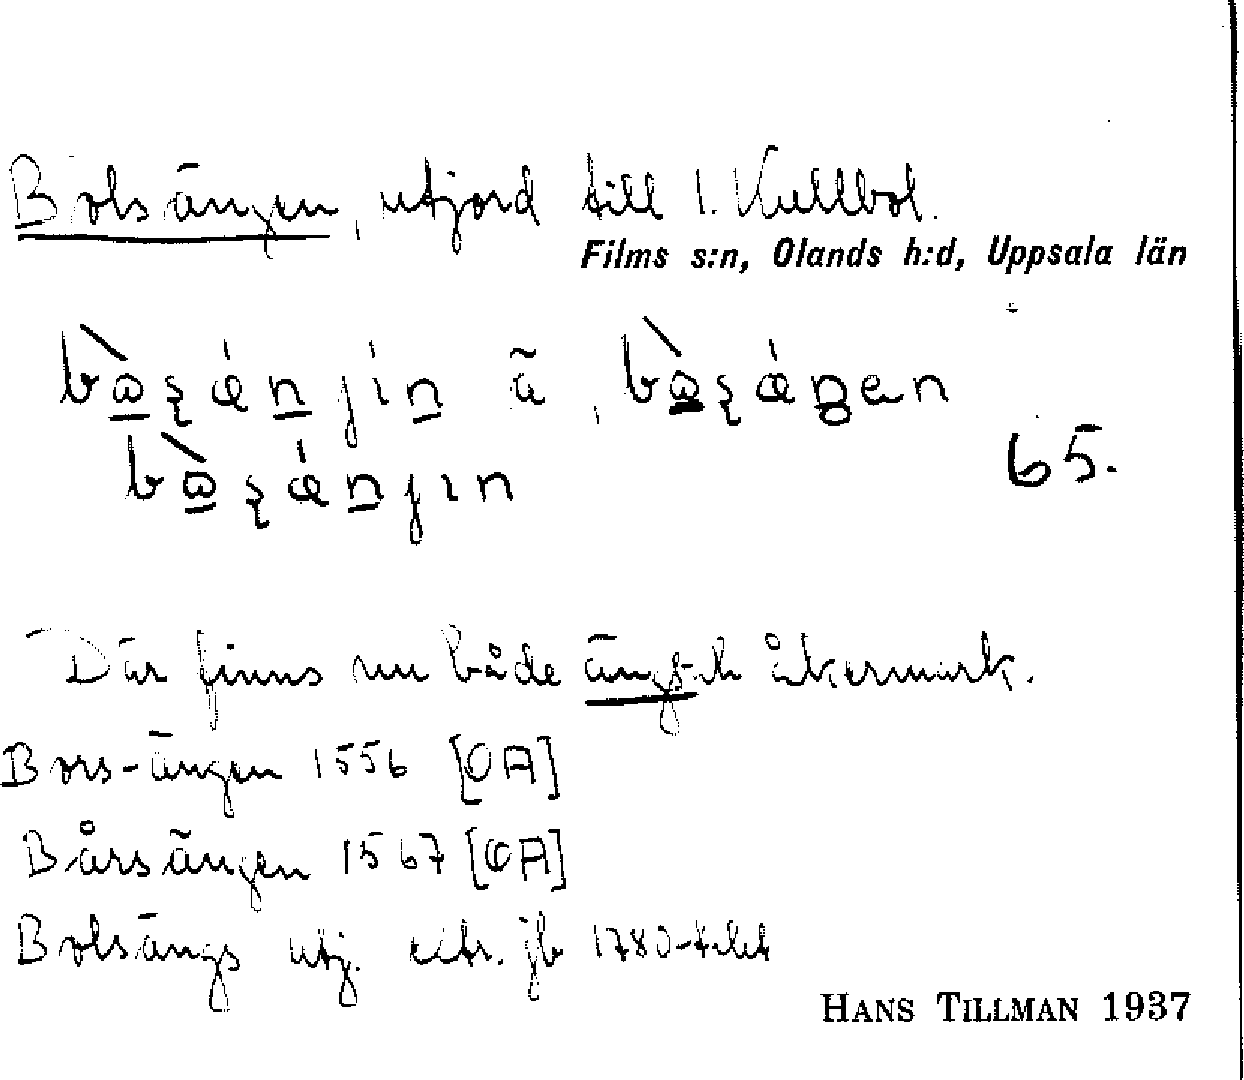 Bolsängen, utjord till 1. Kullbol.
Films s:n, Olands h:d, Uppsala län
65.
Där finns nu både ängs- åkermark.
Bors-ängen 1556 [OA]
Bårsängen 1567 [OA]
Bolsängs utj. jb 1780-talet
HANS TILLMAN 1937